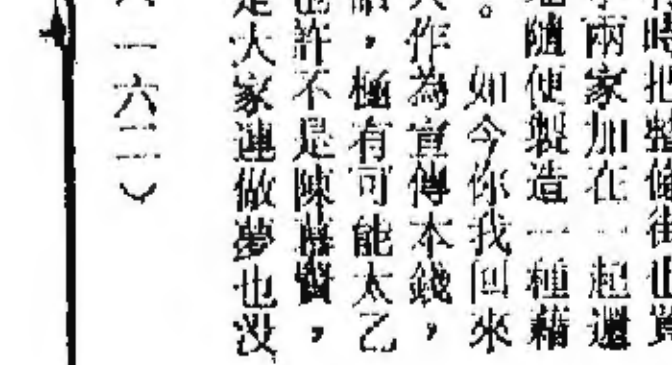 時把整個街也買
兩家加在一起還
隨便製造一種藉
。如今你我回來
作為宣傳本錢，
，極有可能太乙
許不是陳 賢，
是大家連做夢也沒
一六二）